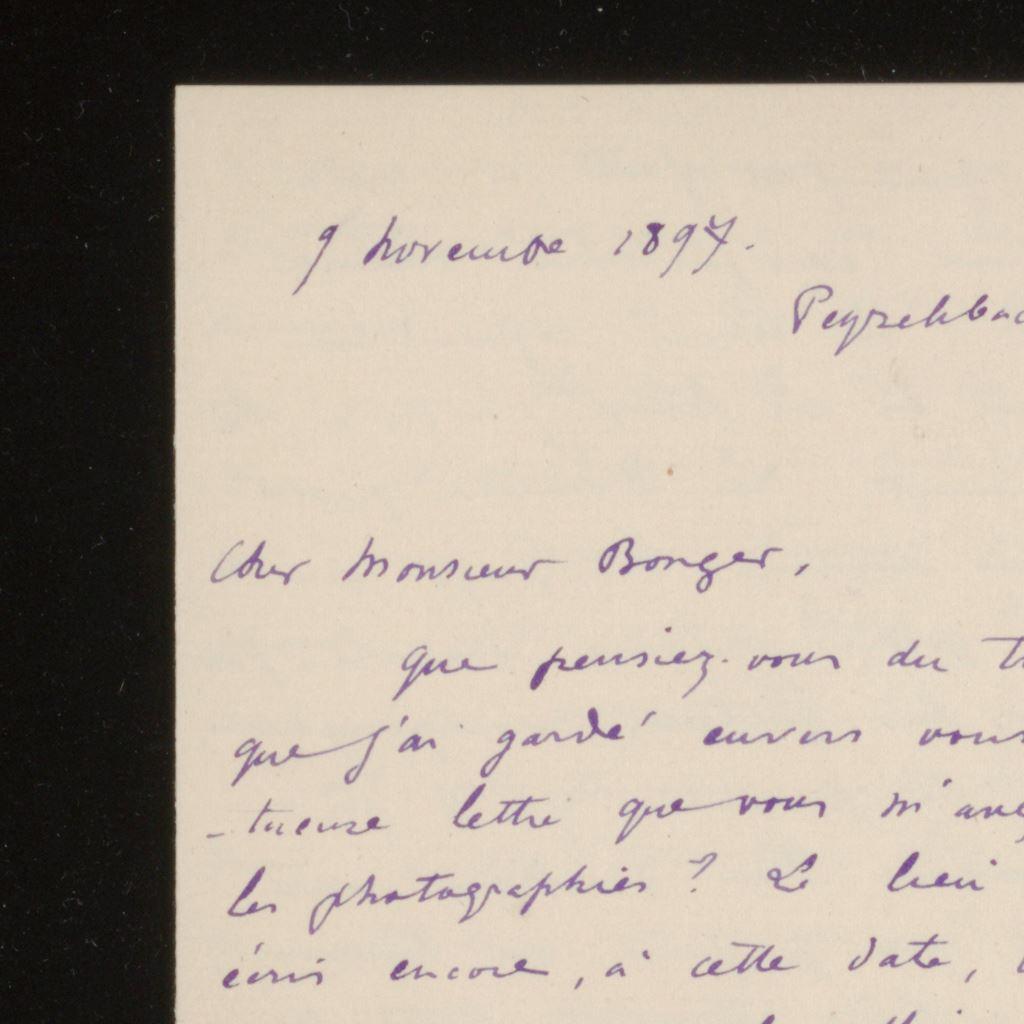 9 novembre 1897.
Peyrelebad
Cher Monsieur Bonger,
que pensiez-vous du
que j'ai gardé envers vous
-tueuse lettre que vous m'avez
les photographies ? Le lieu
écris encore, à cette date,